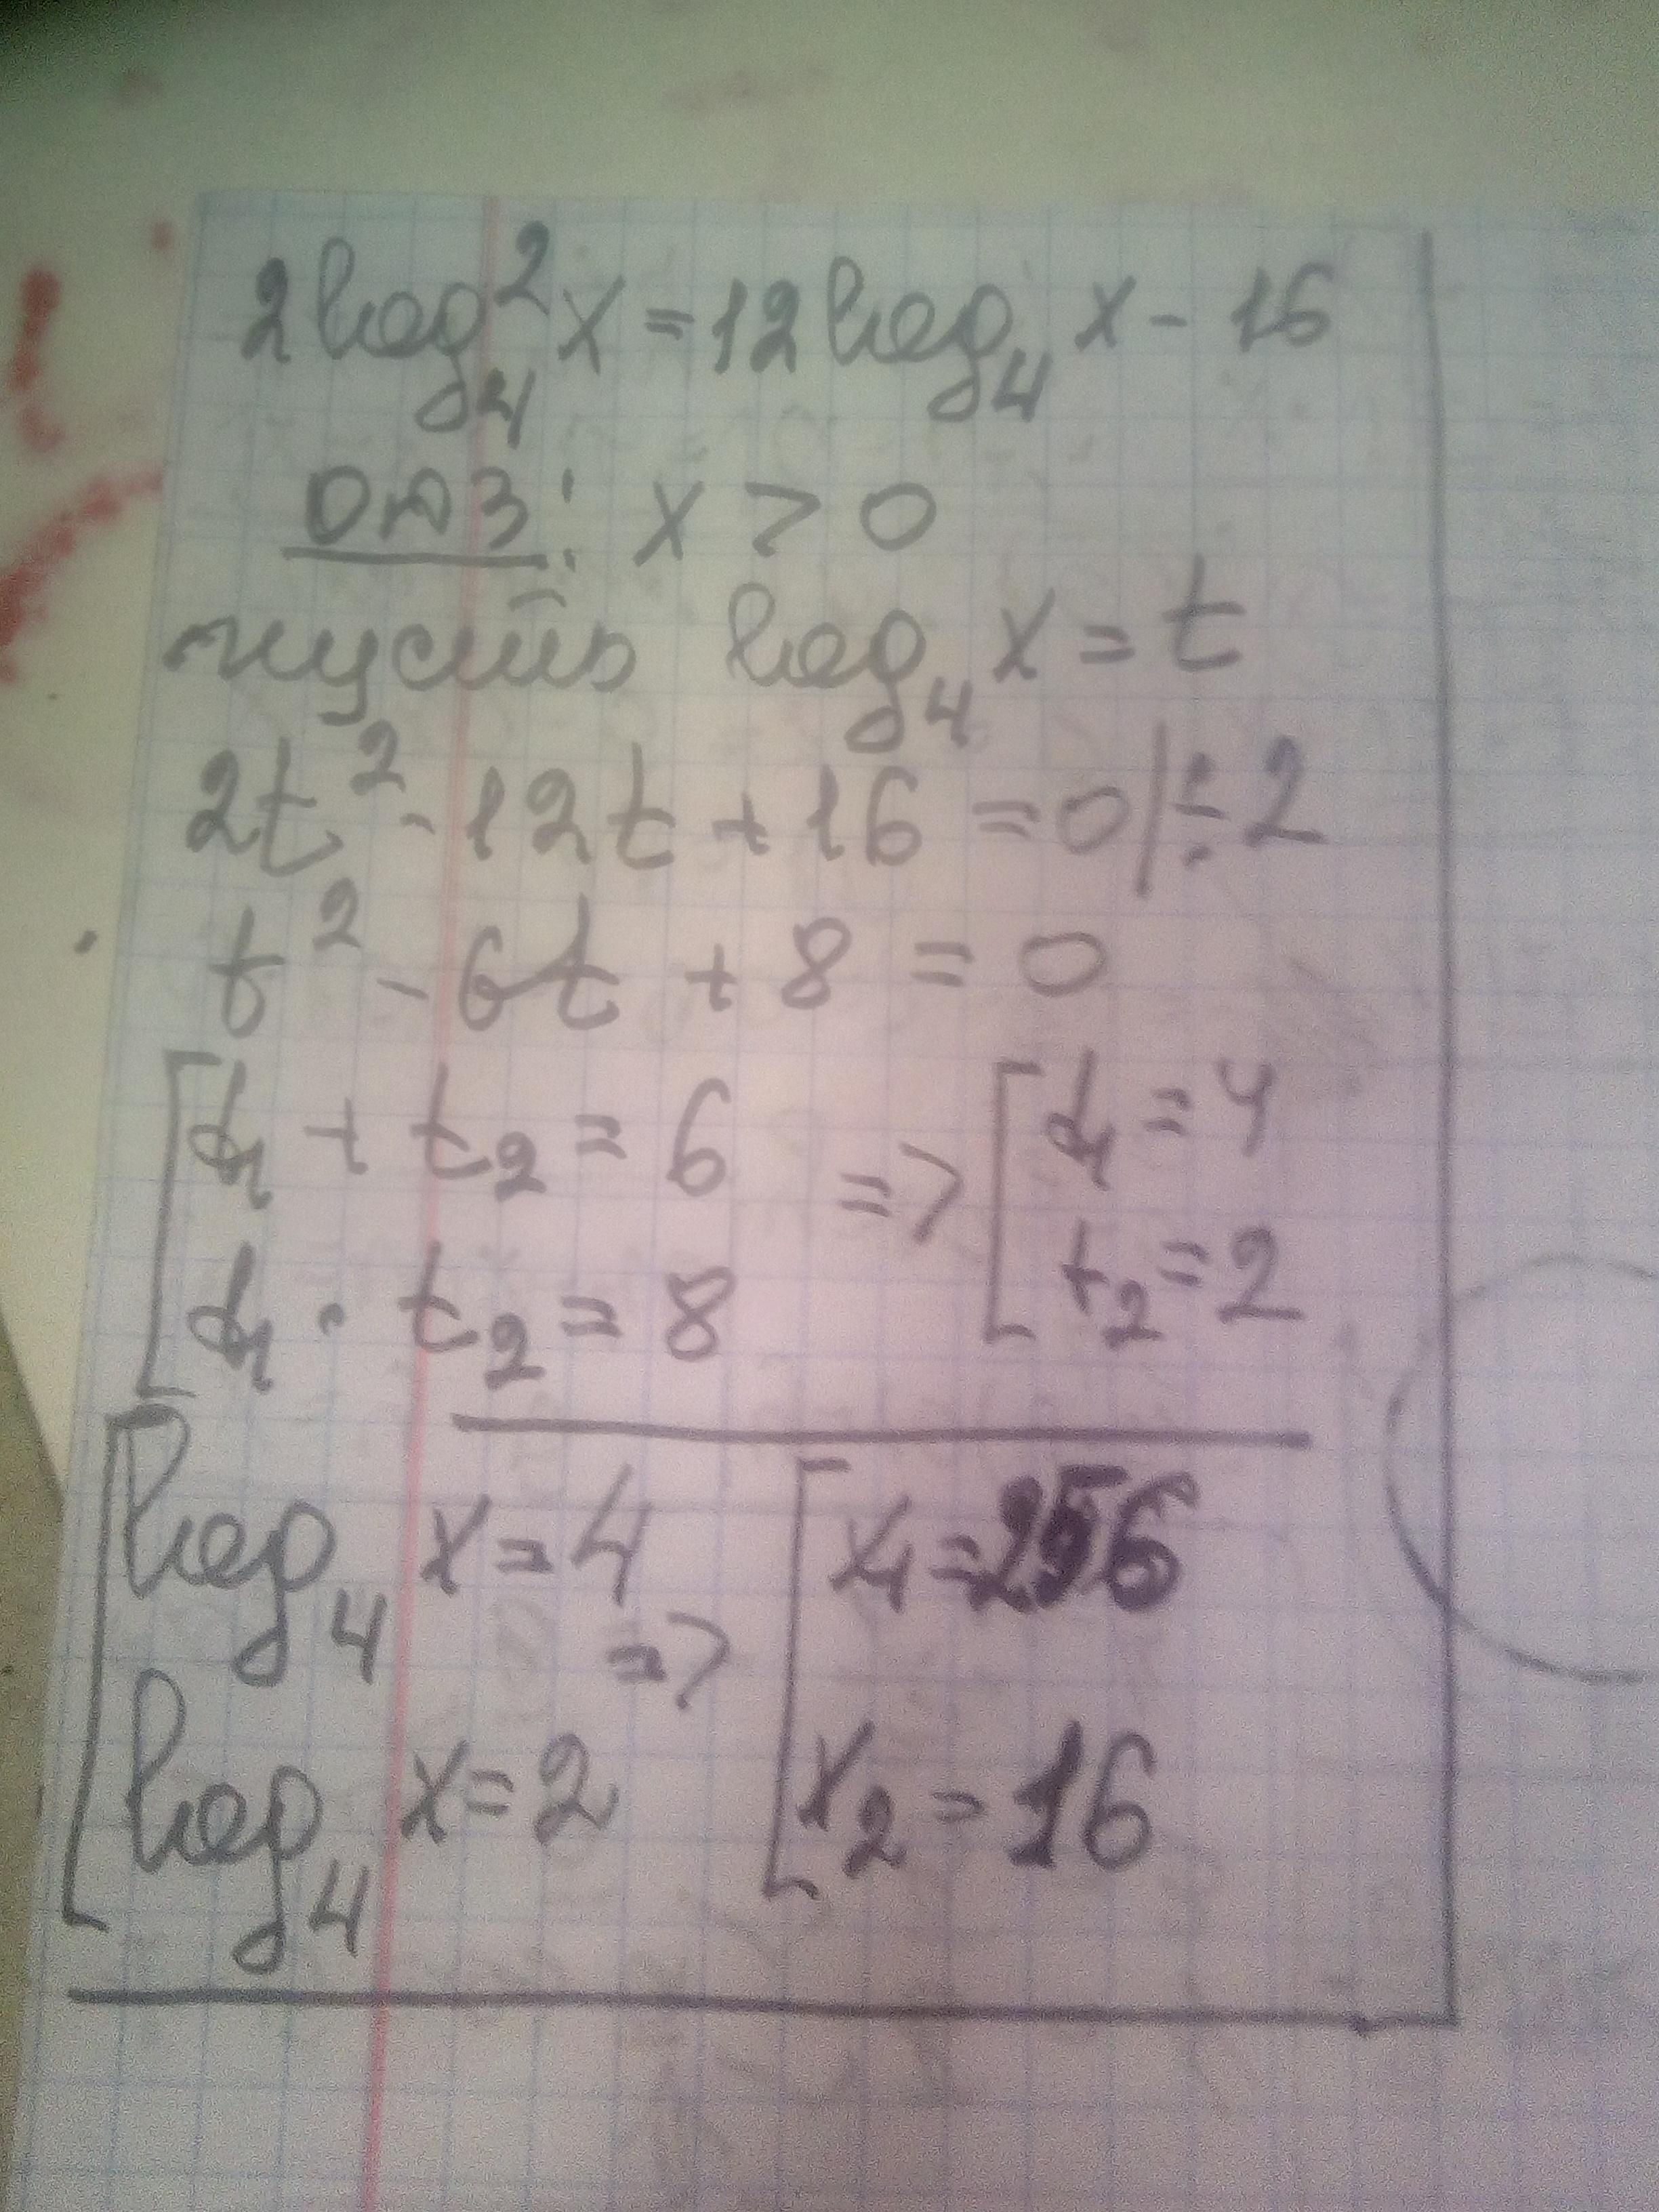 2log₄²x=12log₄x-16
ОДЗ: x > 0
пусть log₄x=t
2t²-12t+16=0|÷2
t²-6t+8=0
[t₁+t₂=6 => [t₁=4
t₁·t₂=8 t₂=2
[log₄x=4 => [x₁=256
log₄x=2 x₂=16